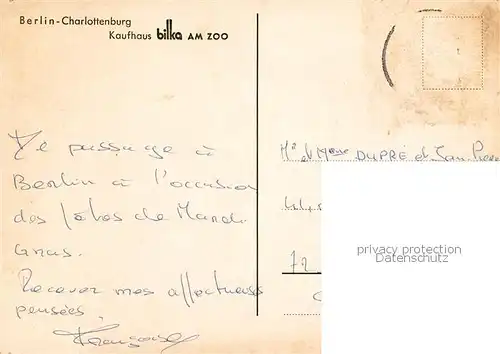 Berlin-Charlottenburg
Kaufhaus bilka AM ZOO
De passage à
Berlin à l'occasion
des fêtes de Mardi
Gras.
Recevez mes affectueuses
pensées.
Mr et Mme DUPRÉ et Jean
72
privacy protection
Datenschutz